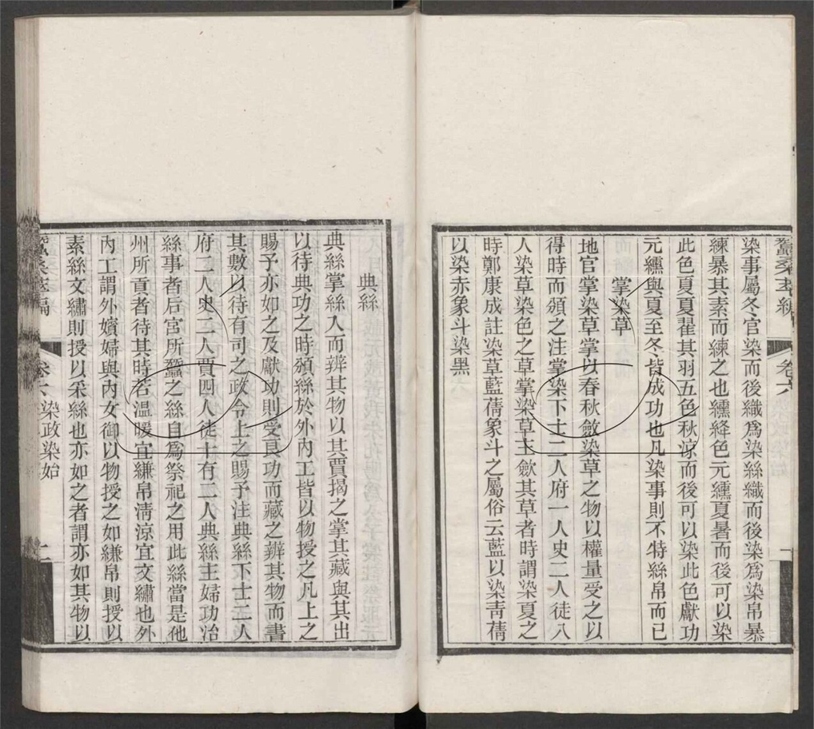 蠶桑萃編
卷六
染事屬冬官染而後織爲染絲織而後染爲染帛暴
練暴其素而練之也纁絳色元纁夏暑而後可以染
此色夏夏翟其羽五色秋涼而後可以染此色獻功
元纁與夏至冬皆成功也凡染事則不特絲帛而已
掌染草
地官掌染草掌以春秋斂染草之物以權量受之以
得時而頒之注掌染下士二人府一人史二人徒八
人染草染色之草掌染草主斂其草者時謂染夏之
時鄭康成註染草藍蒨象斗之屬俗云藍以染青蒨
以染赤象斗染黑
典絲
典絲掌絲入而辨其物以其賈揭之掌其藏與其出
以待典功之時頒絲於外內工皆以物授之凡上之
賜予亦如之及獻功則受良功而藏之辨其物而書
其數以待有司之政令上之賜予注典絲下士二人
府二人史二人賈四人徒十有二人典絲主婦功冶
絲事者后宮所蠶之絲自爲祭祀之用此絲當是他
州所貢者待其時若温暖宜縑帛清涼宜文繡也外
內工謂外嬪婦與內女御以物授之如縑帛則授以
素絲文繡則授以采絲也亦如之者謂亦如其物以
蠶桑萃編
卷六 染政染始
二